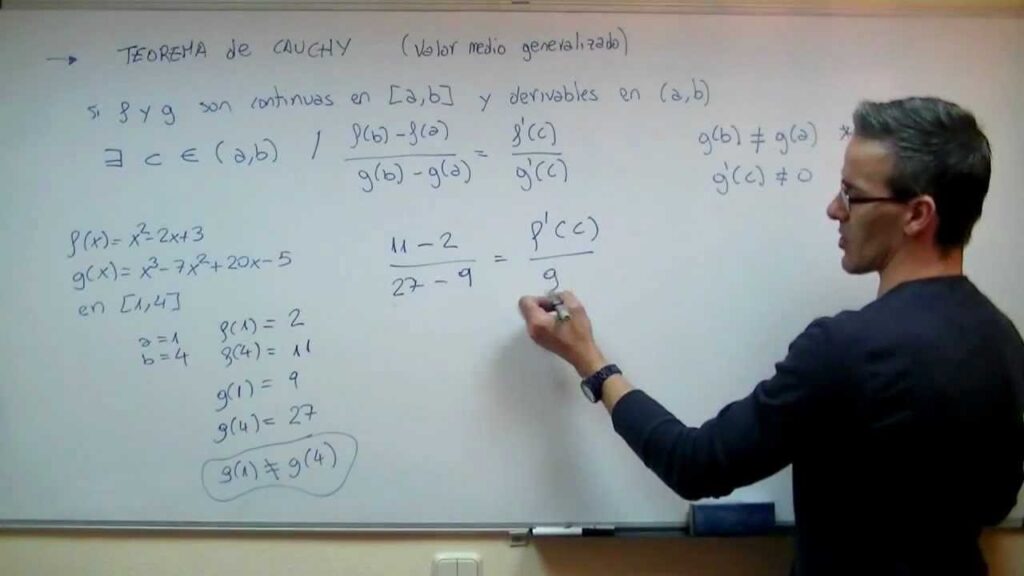 → TEOREMA de CAUCHY (Valor medio generalizado)
si f y g son continuas en [a,b] y derivables en (a,b)
∃ c ∈ (a,b) / f(b)-f(a) / g(b)-g(a) = f'(c) / g'(c)
g(b) ≠ g(a) *
g'(c) ≠ 0
f(x)= x²-2x+3
g(x)= x³-7x²+20x-5
en [1,4]
a=1
b=4
f(1)= 2
f(4)= 11
g(1)= 9
g(4)= 27
g(1) ≠ g(4)
11-2 / 27-9 = f'(c) / g